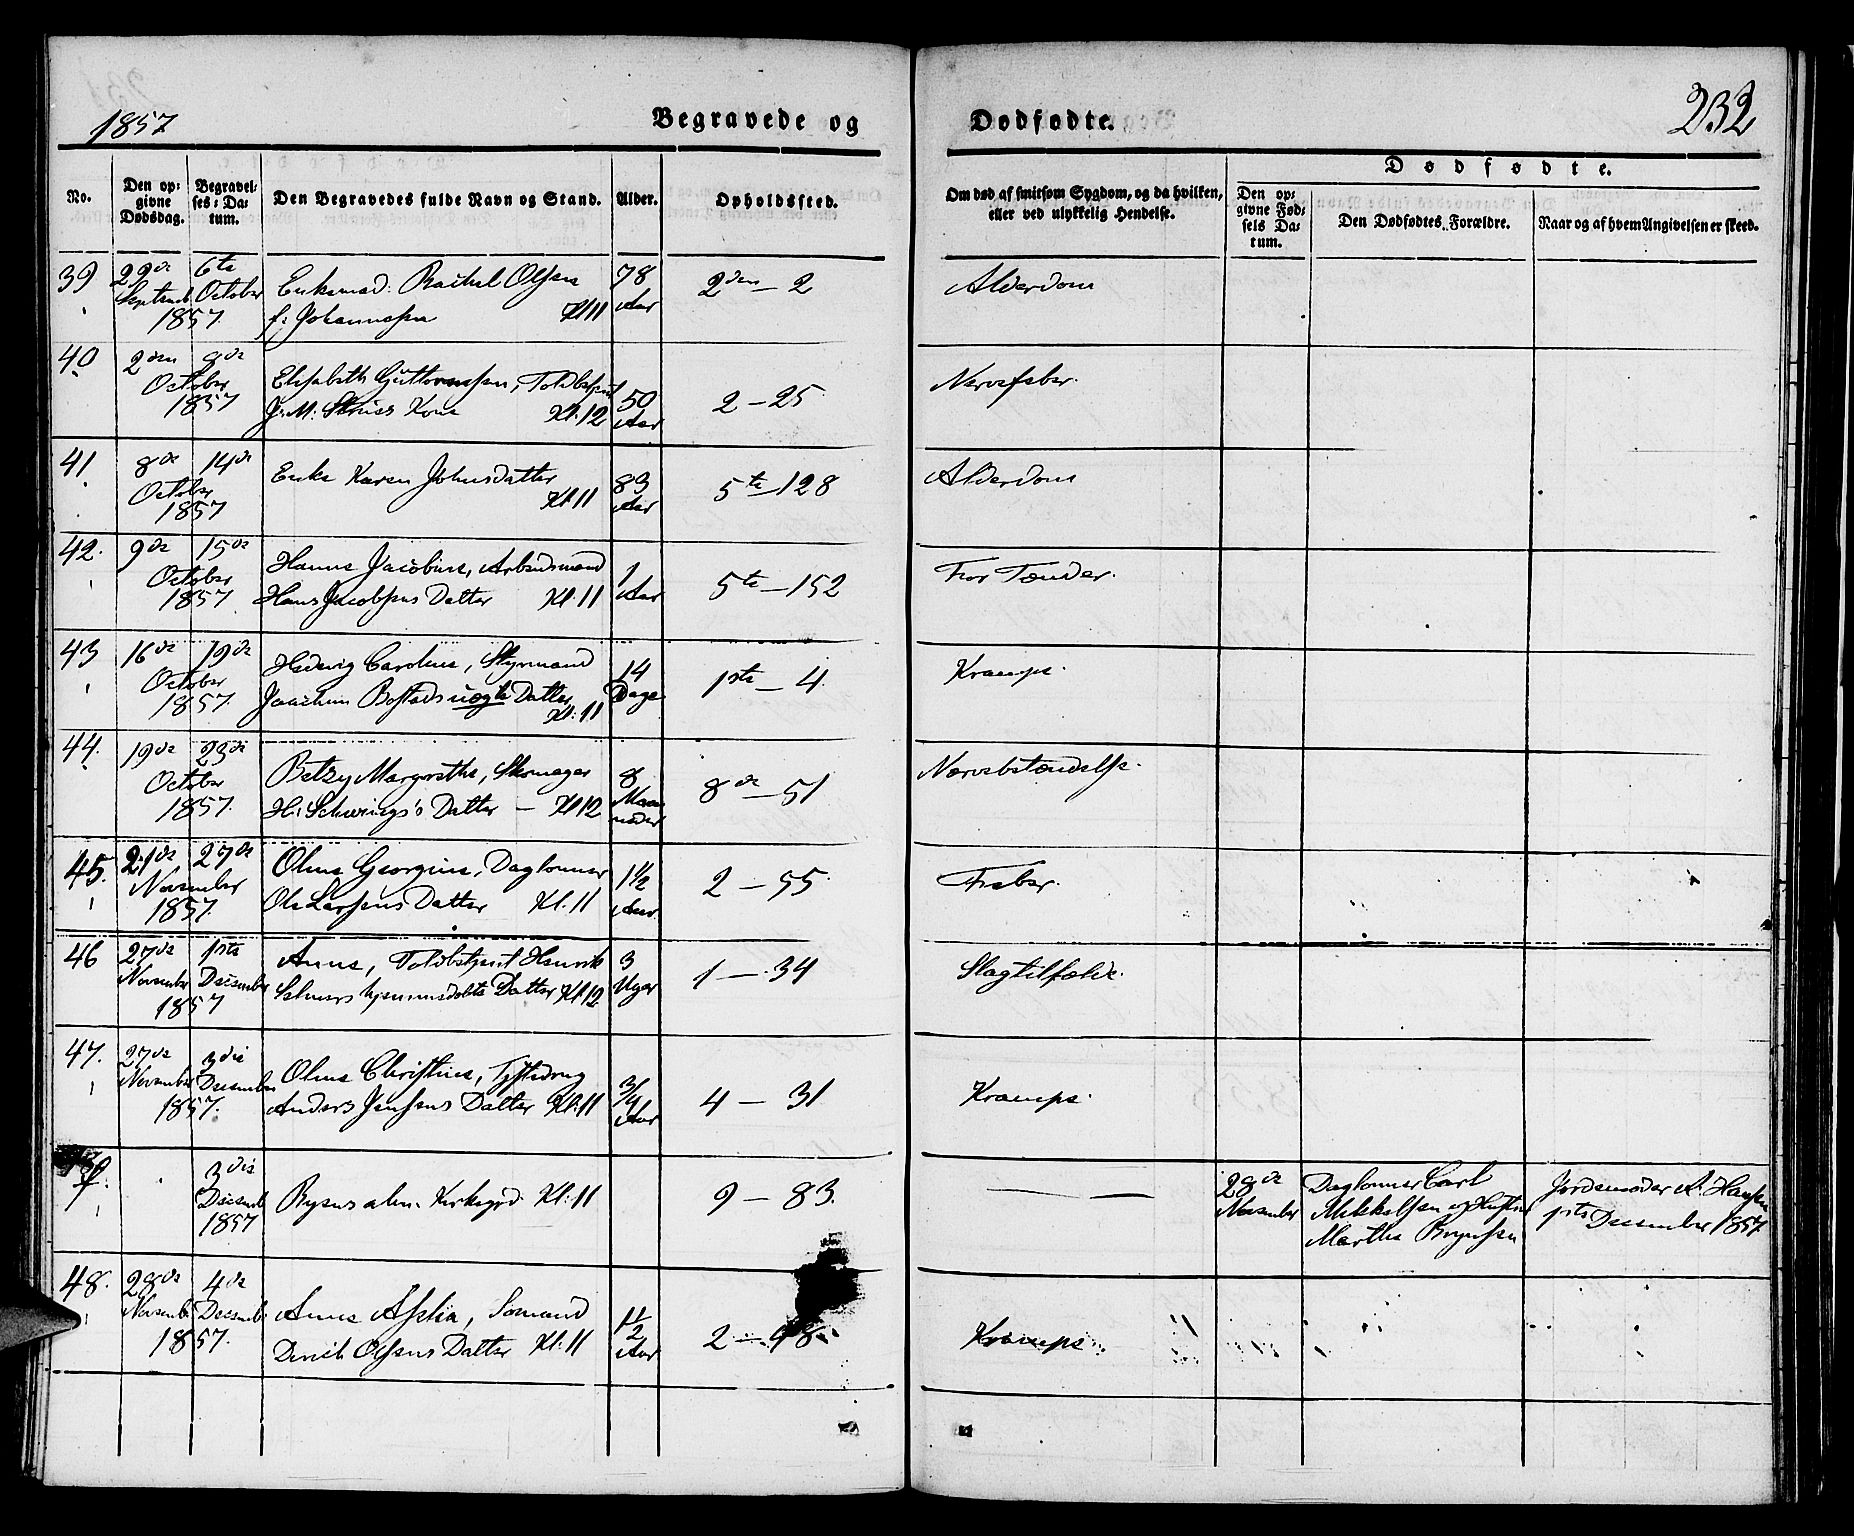 1857
Begravede og
Dødfødte.
232
No.
Den op-
givne
Dødsdag.
Begravel-
ses-Da-
tum.
Den Begravedes fulde Navn og Stand.
Alder.
Opholdssted.
Om død af smitsom Sygdom, og da hvilken,
eller ved ulykkelig Hendelse.
Dødfødte.
Den op-
givne Fød-
sels Da-
tum.
Den Dødfødtes Forældre.
Naar og af hvem Angivelsen er skeed.
39 29de 6te
Septemb October
1857.
Enkemad. Rachel Olsen
f: Johannessen Kl 11
78
Aar
2den - 2
Alderdom
40 2den 8de
October
1857
Elisabeth Guttormssen, Toldbetjent
J. M. Kone Kl. 12
50
Aar
2 - 25
Nervefeber.
41 8de 14de
October
1857
Enke Karen Johnsdatter
Kl 11
83
Aar
5te - 128
Alderdom
42. 9de 15de
October
1857
Hanne Jacobine, Arbeidsmand
Hans Jacobsens Datter Kl. 11
1
Aar
5te - 152
For Tænder.
43 16de 19de
October
1857.
Hedevig Caroline, Styrmand
Joachim uægte Datter
Kl. 11
14
Dage
1ste - 4.
Krampe.
44. 19de 23de
October
1857.
Betzy Margrethe, Skomager
H: Schwings's Datter - Kl 12
8
Maa-
neder
8de - 51
Nervebetændelse.
45. 21de 27de
November
1857.
Oline Georgine, Daglønner
Ole Larsens Datter Kl. 11
1 1/2
Aar.
2 - 55.
Feber.
46 27de 1ste
November December
1857
Anne, Toldbetjent Henrik
hjemmedøbte Datter Kl 12
3
Uger
1 - 34
Slagtilfælde.
47. 27de 3die
November December
1857.
Oline Christine,
Anders Jensens Datter Kl. 11
3/4
Aar
4 - 31
Krampe.
3die
Decemb
1857
alm. Kirkegrd Kl. 11
9 - 83.
28de
November
Daglønner Carl
Mikkelsen og Hustru
Marthe
Jordemoder A. Hansen
1ste December 1857.
48. 28de 4de
Novemb Decemb
1857.
Anne, Sømand
Olsens Datter Kl. 11
1 1/2
Aar
2 - 48
Krampe